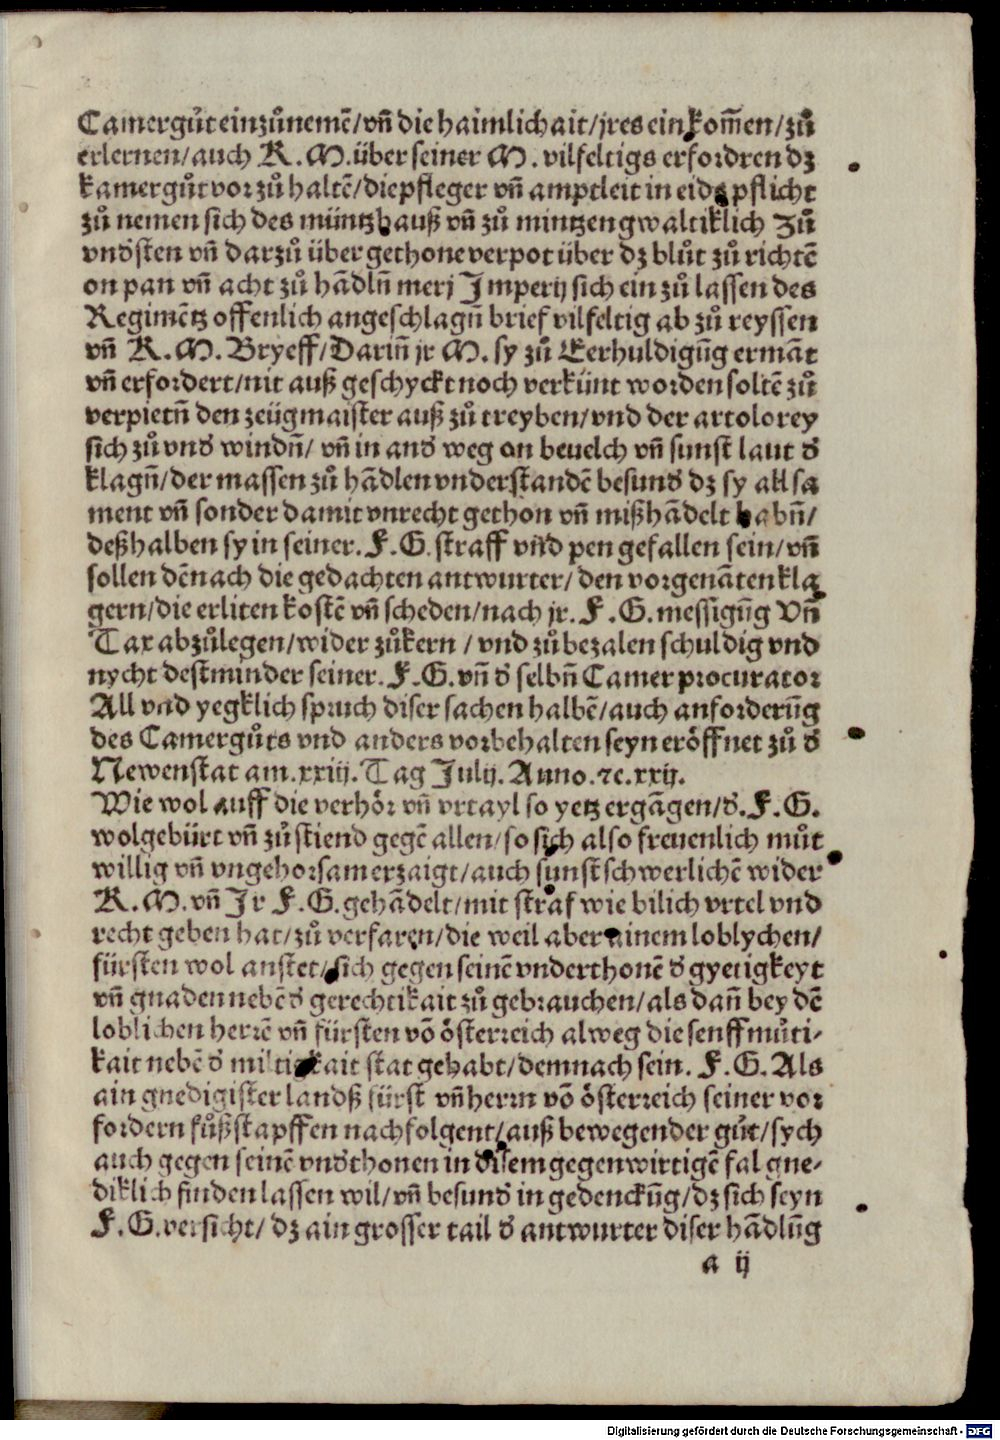 Camergůt einzůnemē/vn̄ die haimlichait/jres ein kom̄en/zů
erlernen/auch K.M. über seiner M. vilfeltigs erfordren dz
kamergůt vor zů haltē/die pfleger vn̄ amptleit in eids pflicht
zů nemen sich des müntzhauß vn̄ zů mintzen gwaltiklich Zů
vndsten vn̄ darzů über gethone verpot über dz blůt zů richtē
on pan vn̄ acht zů hādln̄ merj Imperij sich ein zů lassen des
Regimētz offenlich angeschlagn̄ brief vilfeltig ab zů reyssen
vn̄ K.M. Bryeff/Darin̄ jr M. sy zů Eerhuldigūg ermāt
vn̄ erfordert/nit auß geschyckt noch verkünt worden soltē zů
verpietn̄ den zeügmaister auß zů treyben/vnd der artolorey
sich zů vnd windn̄/ vn̄ in and weg on beuelch vn̄ sunst laut d
klagn̄/der massen zů hādlen vnderstandē besund dz sy all sa
ment vn̄ sonder damit vnrecht gethon vn̄ mißhādelt habn̄/
deßhalben sy in seiner. F.G. straff vnd pen gefallen sein/vn̄
sollen dēnach die gedachten antwurter/ den vorgenāten kla
gern/die erliten kostē vn̄ scheden/nach jr. F.G. messigūg Vn̄
Tax abzůlegen/wider zůkern / vnd zů bezalen schuldig vnd
nycht destminder seiner. F.G. vn̄ d selbn̄ Camer procurator
All vnd yegklich spruch diser sachen halbē/auch anforderūg
des Camergůts vnd anders vorbehalten seyn eröffnet zů d
Newenstat am.xxiij. Tag Julij. Anno.⁊c.xxij.
Wie wol auff die verhör vn̄ vrtayl so yetz ergāgen/d. F.G.
wolgebürt vn̄ zů stiend gegē allen/so sich also freuenlich můt
willig vn̄ vngehorsam erzaigt/auch sunst schwerlichē wider
K.M. vn̄ Jr F.G. gehādelt/mit straf wie bilich vrtel vnd
recht geben hat/zů verfaren/die weil aber ainem loblychen/
fürsten wol anstet/sich gegen seinē vnderthonē d gyetigkeyt
vn̄ gnaden nebē d gerechtikait zů gebrauchen/als dan̄ bey dē
loblichen herrē vn̄ fürsten vō österreich alweg die senffmůti-
kait nebē d miltigkait stat gehabt/demnach sein. F.G. Als
ain gnedigister landß fürst vn̄ herrn vō österreich seiner vor
fordern fůßstapffen nachfolgent/auß bewegender gůt/sych
auch gegen seinē vndthonen in disem gegenwirtigē fal gne-
diklich finden lassen wil/vn̄ besund in gedenckūg/dz sich seyn
F.G. versicht/ dz ain grosser tail d antwurter diser hādlūg
a ij
Digitalisierung gefördert durch die Deutsche Forschungsgemeinschaft - DFG